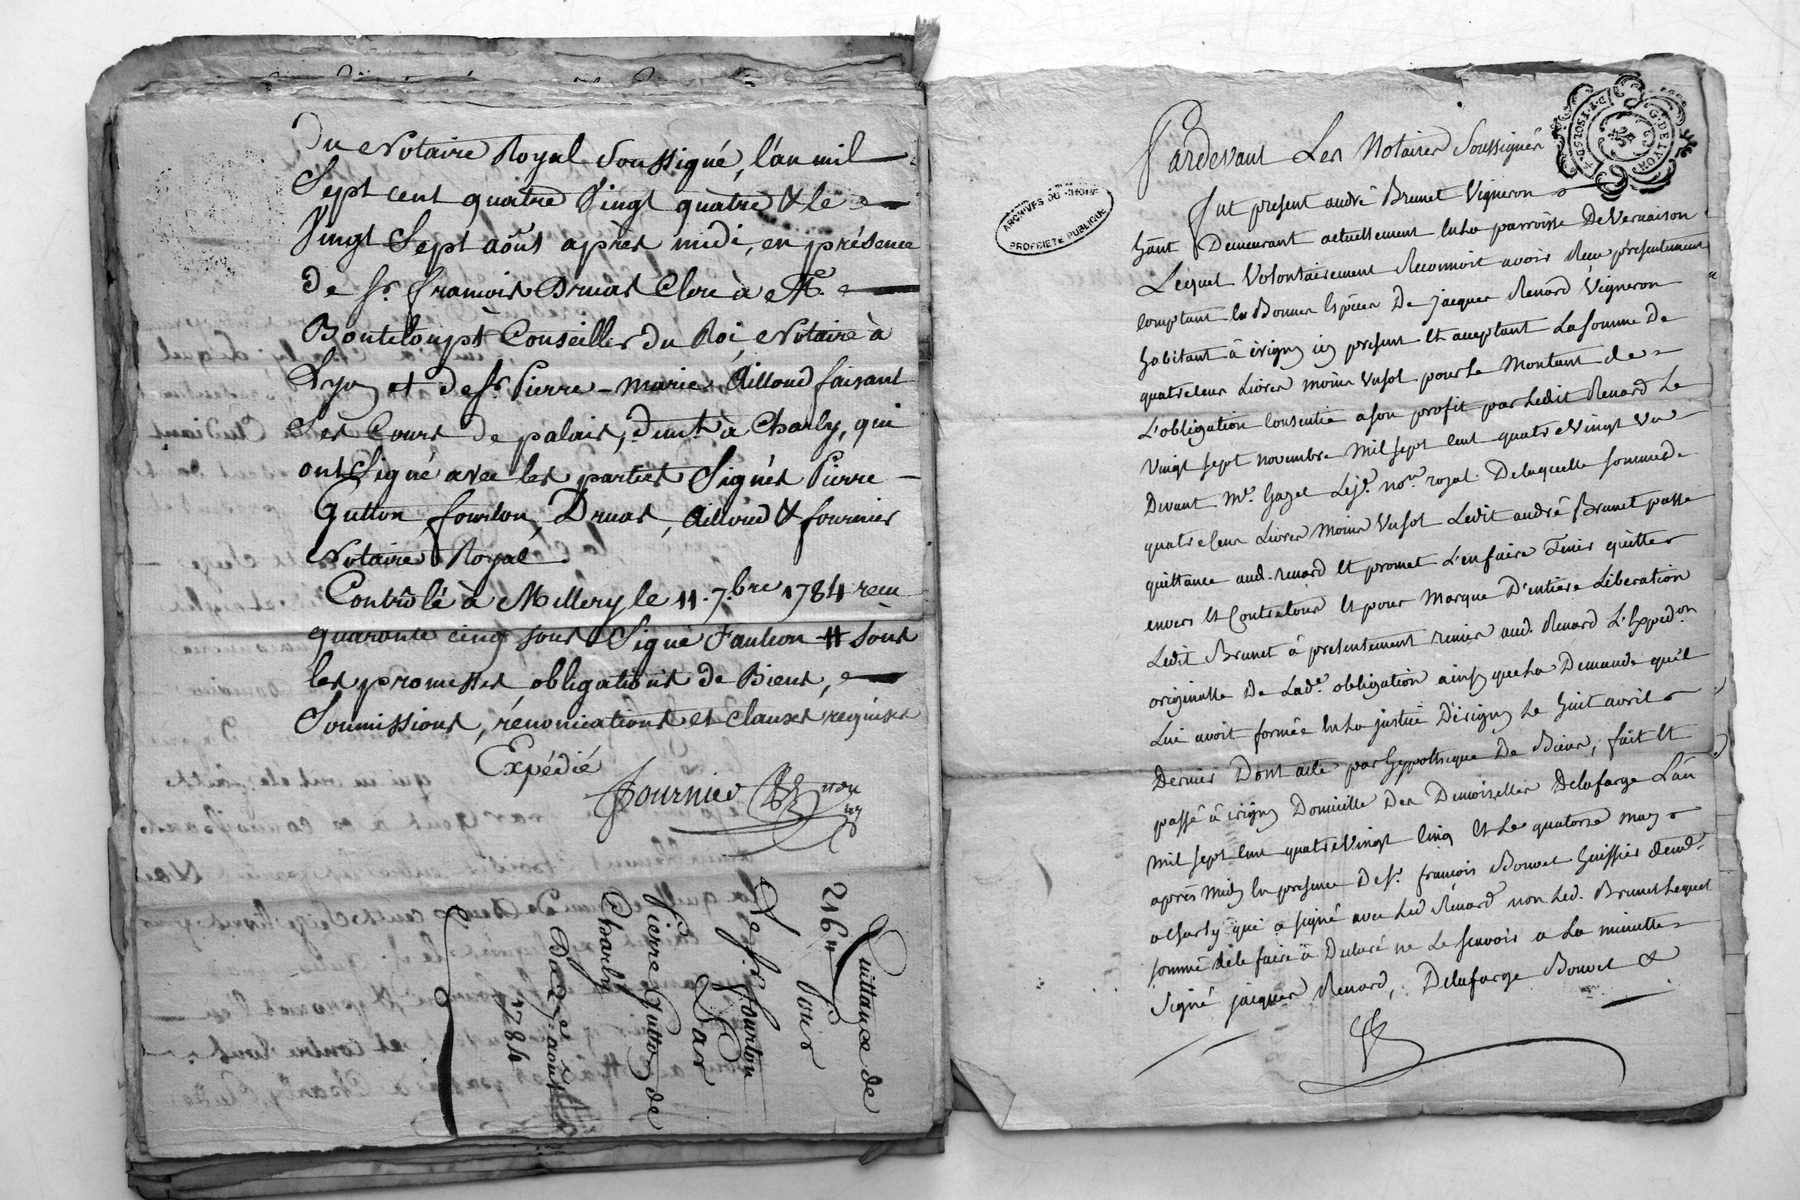 Du Notaire Royal Soussigné, l'an mil
Sept cent quatre Vingt quatre & le
Vingt Sept août après midi, en présence
de Sr. françois Druas Clerc à Me.
Bonteloupt Conseiller du Roi, Notaire à
Lyon et de Sr. Pierre-marie Ailloud faisant
Ses Cours de palais, demt. à Charly, qui
ont Signé avec les parties Signés Pierre
Gutton, fourlon, Druas, Ailloud & fournier
Notaire Royal
Contrôlé à Millery le 11. 7.bre 1784 recu
quarante cinq sous Signé Faulion # sous
les promesses obligations de Biens,
Soumissions, rénonciations et clauses requises
Expédié
fournier
Quittance de
216# Pour
Le Sr. fourlon
Par
Pierre Gutton de
Charly
août
1784
G. DE LYON
ARCHIVES DU RHONE
PROPRIÉTÉ PUBLIQUE
Pardevant Les Notaires Soussignés
fut present andré Brunet Vigneron
hant Demeurant actuellement en La parroisse De Vernaison
Lequel Volontairement Reconnoit avoir Recu présentement
comptant en Bonnes Espèces De jacques Renard Vigneron
habitant à irigny icy present Et acceptant La somme De
quatre cens Livres moins un sol pour le Montant de
L'obligation consentie a son profit par Ledit Renard Le
Vingt sept novembre Mil sept cent quatre Vingt un
Devant Me. Gazel Lejе. nore. royal. De laquelle somme de
quatre cens Livres Moins un sol Ledit andré Brunet passe
quittance aud. renard Et promet L'en faire Tenir quitte
envers Et Contre tous Et pour Marque D'entière Liberation
Ledit Brunet à presentement remis aud. Renard L'Expedon
originalle De Lade. obligation ainsy que La Demande qu'il
Lui avoit formée en La justice D'irigny Le huit avril
Dernier Dont acte par hyppothèque De Biens, fait Et
passé à irigny Domicille Des Demoiselles Delafarge L'an
Mil sept cent quatre Vingt Cinq Et Le quatorze may
après Midy en presence De Sr. françois Bouvet huissier demt.
a Charly qui a signé avec Led Renard non Led. Brunet Lequel
sommé de le faire à Declaré ne Le scavoir a La minutte
signé jacques Renard, Delafarge Bouvet &